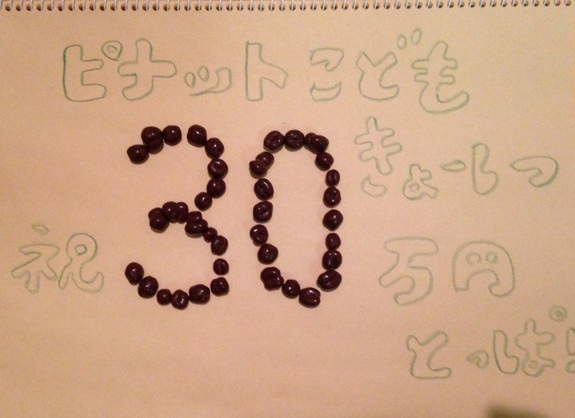 ピナットこども
きょーしつ
祝 30 万円
とっぱ!